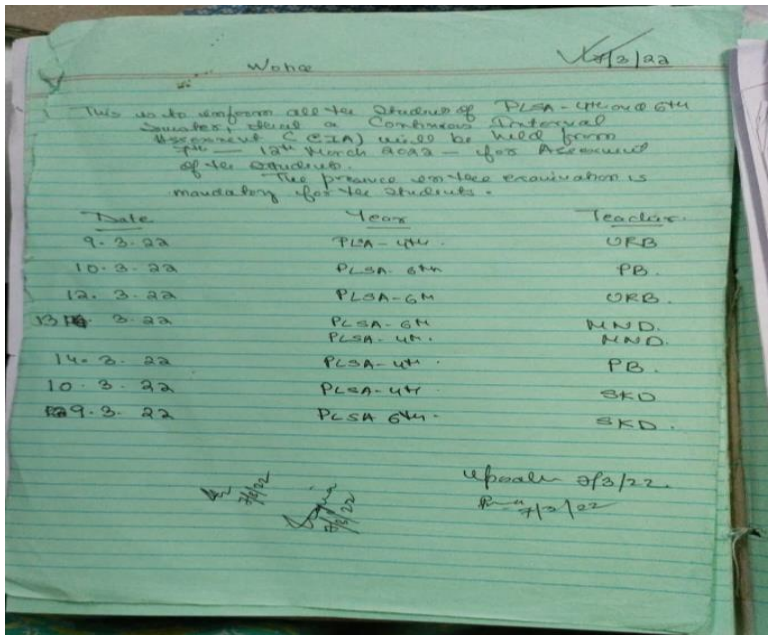 Notice
7/3/22
This is to inform all the Students of PLSA - 4th and 6th
Semester, that a Continous Internal
Assessment (CIA) will be held from
7th — 12th March 2022 - for Assessment
of the Students.
The presence in the examination is
mandatory for the Students.
Date Year Teacher
9. 3. 22 PLSA - 4th. URB
10. 3. 22 PLSA. 6th PB.
12. 3. 22 PLSA - 6th URB.
13 3. 22 PLSA - 6th MND.
PLSA - 4th. MND.
14. 3. 22 PLSA - 4th. PB.
10. 3. 22 PLSA - 4th SKD
9. 3. 22 PLSA 6th. SKD.
7/3/22.
7/3/22
7/3/22
7/3/22